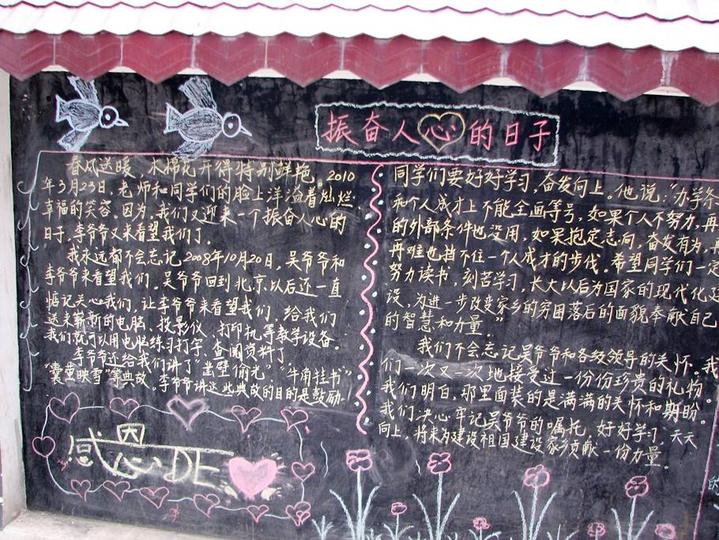 振奋人心的日子
春风送暖，木棉花开得特别鲜艳。2010
年3月23日，老师和同学们的脸上洋溢着灿烂
幸福的笑容。因为，我们又迎来一个振奋人心的
日子，李爷爷又来看望我们了。
我永远都不会忘记2008年10月20日，吴爷爷和
李爷爷来看望我们，吴爷爷回到北京以后还一直
惦记关心我们，让李爷爷来看望我们，给我们
送来崭新的电脑、投影仪、打印机等教学设备。
我们就可以用电脑练习打字、查阅资料了。
李爷爷还给我们讲了“凿壁偷光”、“牛角挂书”
“囊萤映雪”等典故。李爷爷讲这些典故的目的是鼓励
同学们要好好学习，奋发向上。他说：“办学条
和个人成才上不能全画等号，如果个人不努力，再
的外部条件也没用，如果抱定志向，奋发有为，
再难也挡不住一个人成才的步伐。希望同学们一定
努力读书，刻苦学习，长大以后为国家的现代化建
设，为进一步改变家乡的穷困落后的面貌奉献自己
的智慧和力量。”
我们不会忘记吴爷爷和各级领导的关怀。我
们一次又一次地接受过一份份珍贵的礼物。
我们明白，那里面装的是满满的关怀和期盼。
我们决心牢记吴爷爷的嘱托，好好学习，天天
向上，将来为建设祖国建设家乡贡献一份力量。
感因
心DE